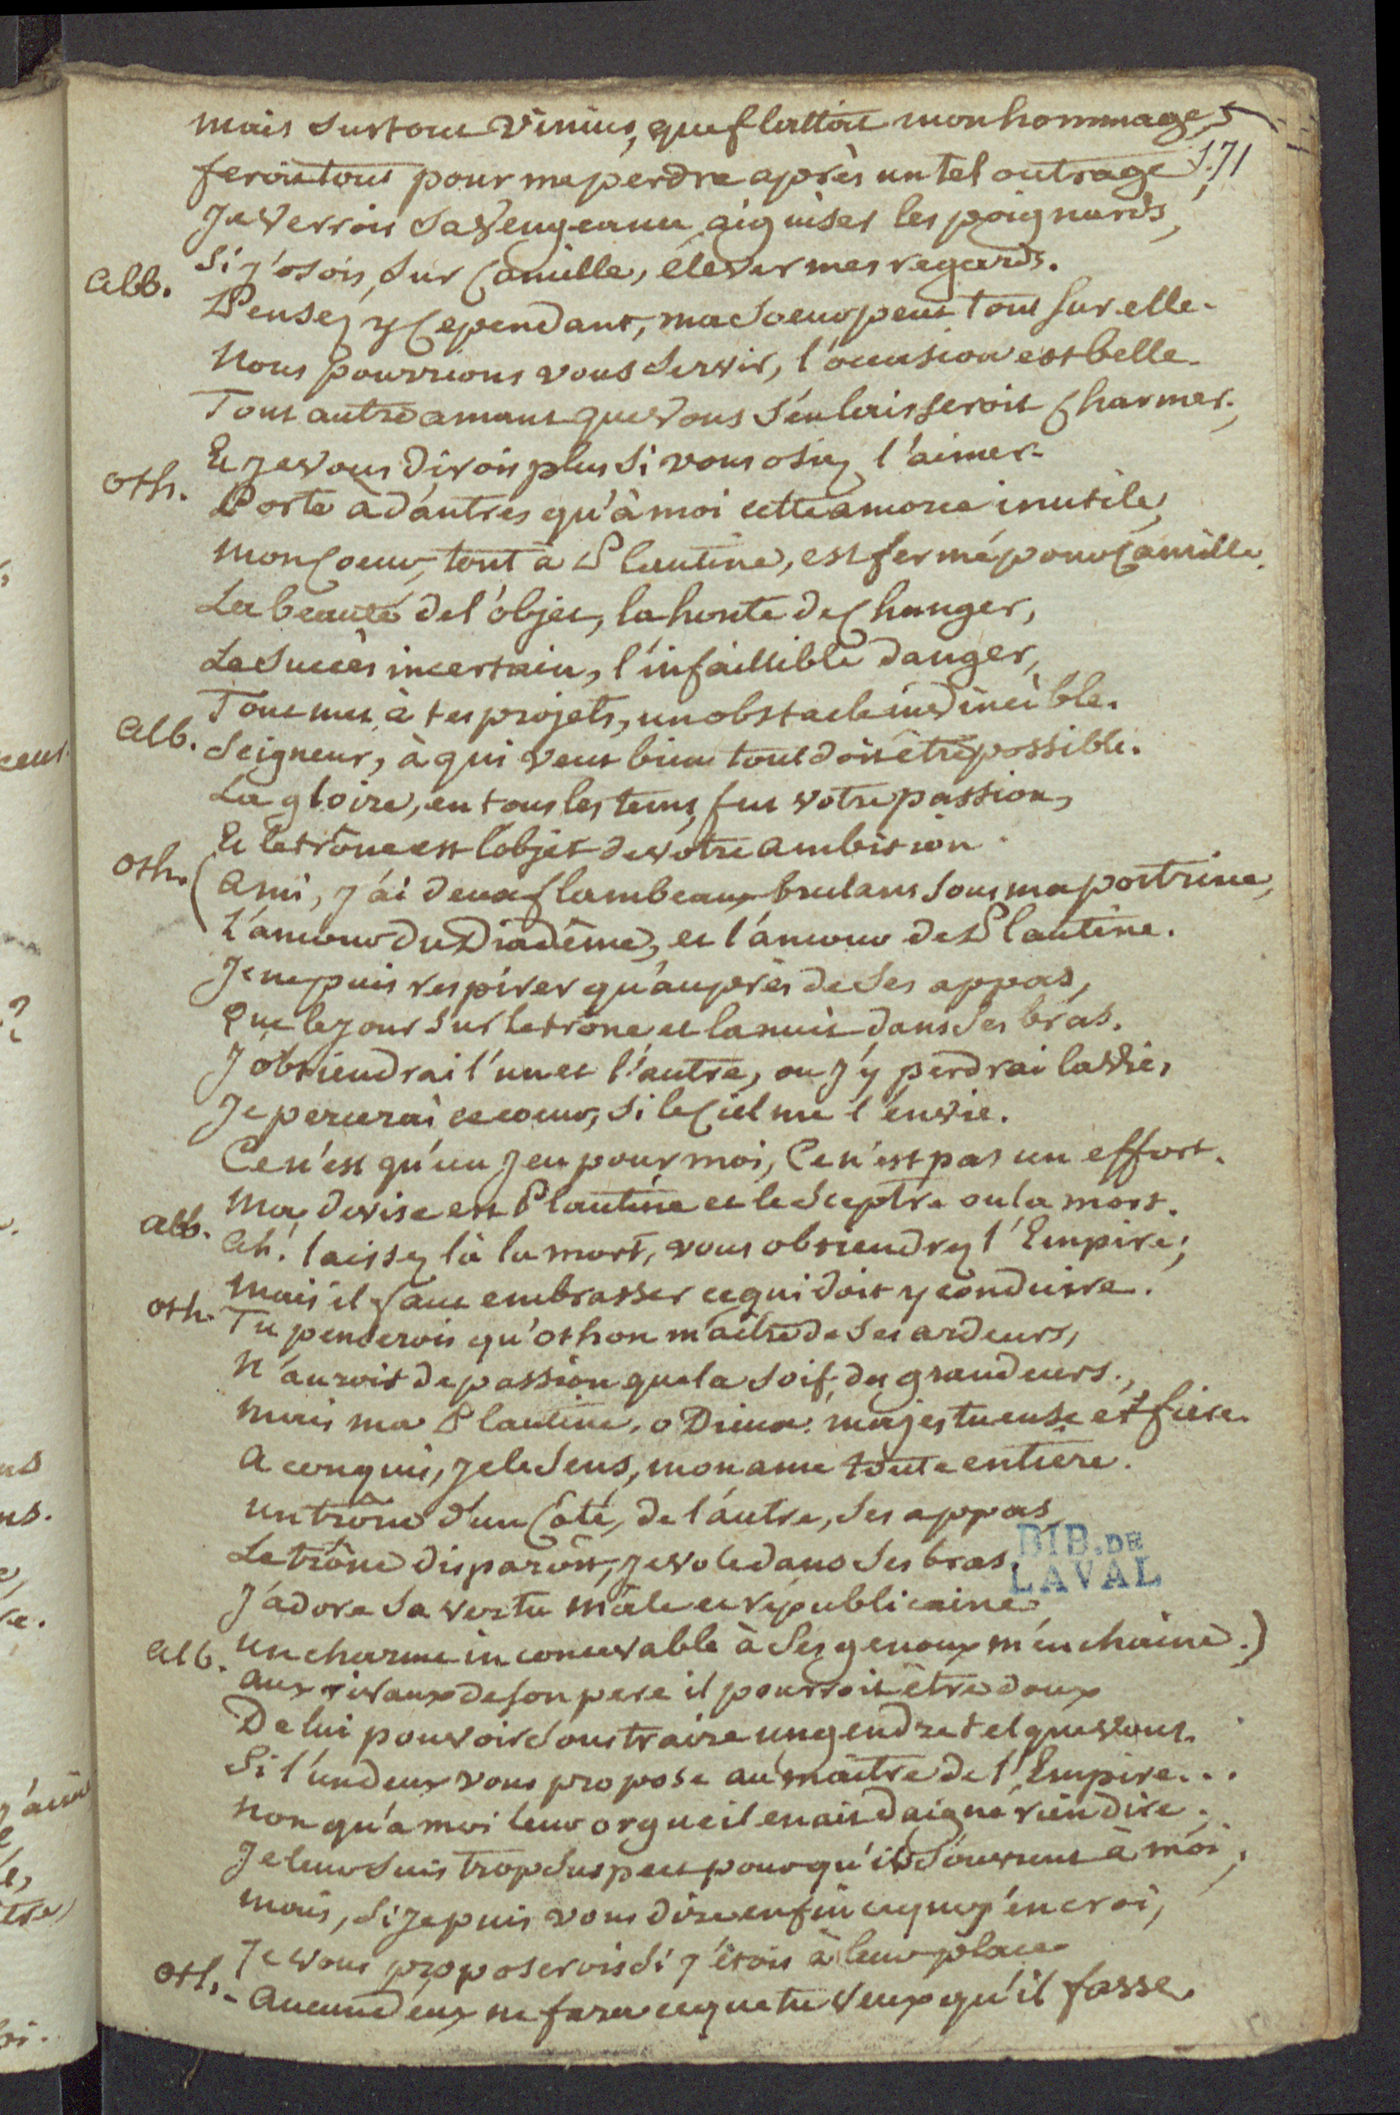 mais surtout Vinius, que flattoit mon hommage,
feroit tout pour me perdre après un tel outrage 571
Je verrois sa vengeance aiguiser les poignards,
Si j'osois, sur Camille, élever mes regards.
Alb. Pensez y cependant, ma soeur peut tout sur elle.
Nous pourrions vous servir, l'occasion est belle.
Tout autre amant que vous s'en laisseroit charmer,
Et je vous dirois plus si vous osiez l'aimer.
Oth. Porte à d'autres qu'à moi cette amorce inutile,
Mon coeur, tout à Plautine, est fermé pour Camille.
La beauté de l'objet, la honte de changer,
Le succès incertain, l'infaillible danger,
Tout met à tes projets, un obstacle invincible.
Alb. Seigneur, à qui veut bien tout doit être possible.
La gloire, en tous les tems, fut votre passion,
Et le trône est l'objet de votre ambition.
Oth. (Ami, j'ai deux flambeaux brulans sous ma poitrine,
L'amour du Diadême, et l'amour de Plautine.
Je ne puis respirer qu'auprès de ses appas,
Que le jour sur le trône et la nuit dans ses bras.
J'obtiendrai l'un et l'autre, ou j'y perdrai la vie,
Je percerai ce coeur, si le Ciel me l'envie.
Ce n'est qu'un jeu pour moi, Ce n'est pas un effort.
Ma devise est Plautine et le Sceptre ou la mort.
Alb. Ah! laissez là la mort, vous obtiendrez l'Empire;
Mais il faut embrasser ce qui doit y conduire.
Oth. Tu penserois qu'Othon maître de ses ardeurs,
N'auroit de passion que la soif des grandeurs.,
Mais ma Plautine, o Dieux! majestueuse et fiere.
A conquis, je le sens, mon ame toute entière.
Un trône d'un côté, de l'autre, ses appas,
Le trône disparôit, je vole dans ses bras.
BIB. DE
LAVAL
J'adore sa vertu mâle et républicaine,
Un charme inconcevable à ses genoux m'enchaine.)
Alb. Aux rivaux de son pere il pourroit être doux
De lui pouvoir soustraire un gendre tel que vous.
Si l'un d'eux vous propose au maître de l'Empire...
Non qu'à moi leur orgueil en ait daigné rien dire.
Je leur suis trop suspect pour qu'ils s'ouvrent à moi;
Mais, si je puis vous dire enfin ce que j'en croi,
Je vous proposerois si j'étois à leur place
Oth. - Aucun d'eux ne fera ce que tu veux qu'il fasse.